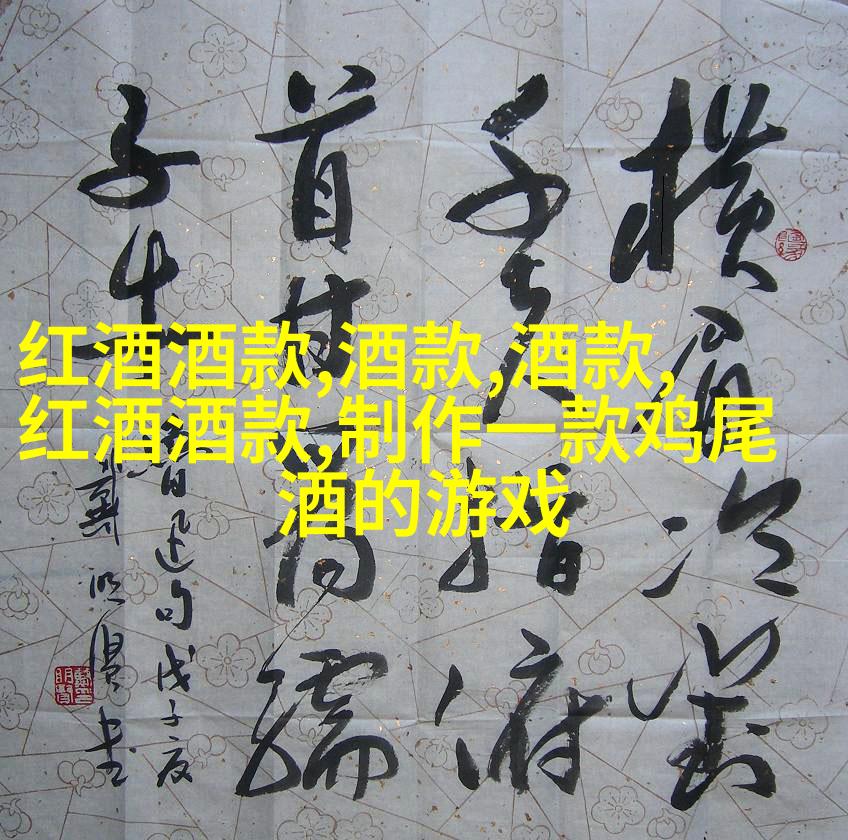 横眉冷对
千夫指俯
首甘为孺
子牛
鲁迅句戊子夏
明汉书
红酒酒款,酒款,酒款,
红酒酒款,制作一款鸡尾
酒的游戏